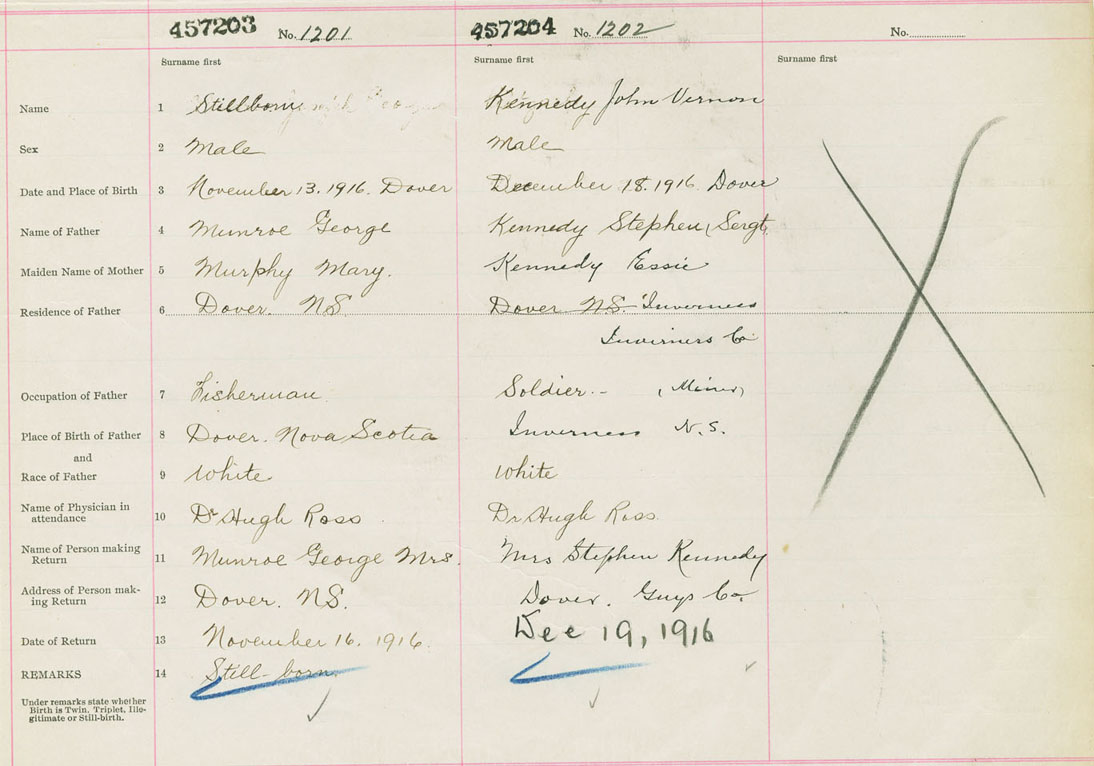 457203 No. 1201 457204 No. 1202 No.
Surname first Surname first Surname first
Name 1 Stillborn Kennedy John Vernon
Sex 2 Male Male
Date and Place of Birth 3 November 13. 1916. Dover December 18. 1916. Dover
Name of Father 4 Munroe George Kennedy Stephen, Sergt.
Maiden Name of Mother 5 Murphy Mary. Kennedy Essie
Residence of Father 6 Dover. N.S. Dover N.S. Inverness
Inverness Co
Occupation of Father 7 Fisherman Soldier.- (Miner)
Place of Birth of Father 8 Dover. Nova Scotia Inverness N.S.
and
Race of Father 9 White White
Name of Physician in
attendance 10 Dr Hugh Ross Dr Hugh Ross.
Name of Person making
Return 11 Munroe George Mrs. Mrs Stephen Kennedy
Address of Person mak-
ing Return 12 Dover. N.S. Dover. Guys Co.
Date of Return 13 November 16. 1916. Dec 19, 1916
REMARKS 14 Still-born.
Under remarks state whether
Birth is Twin, Triplet, Ille-
gitimate or Still-birth.